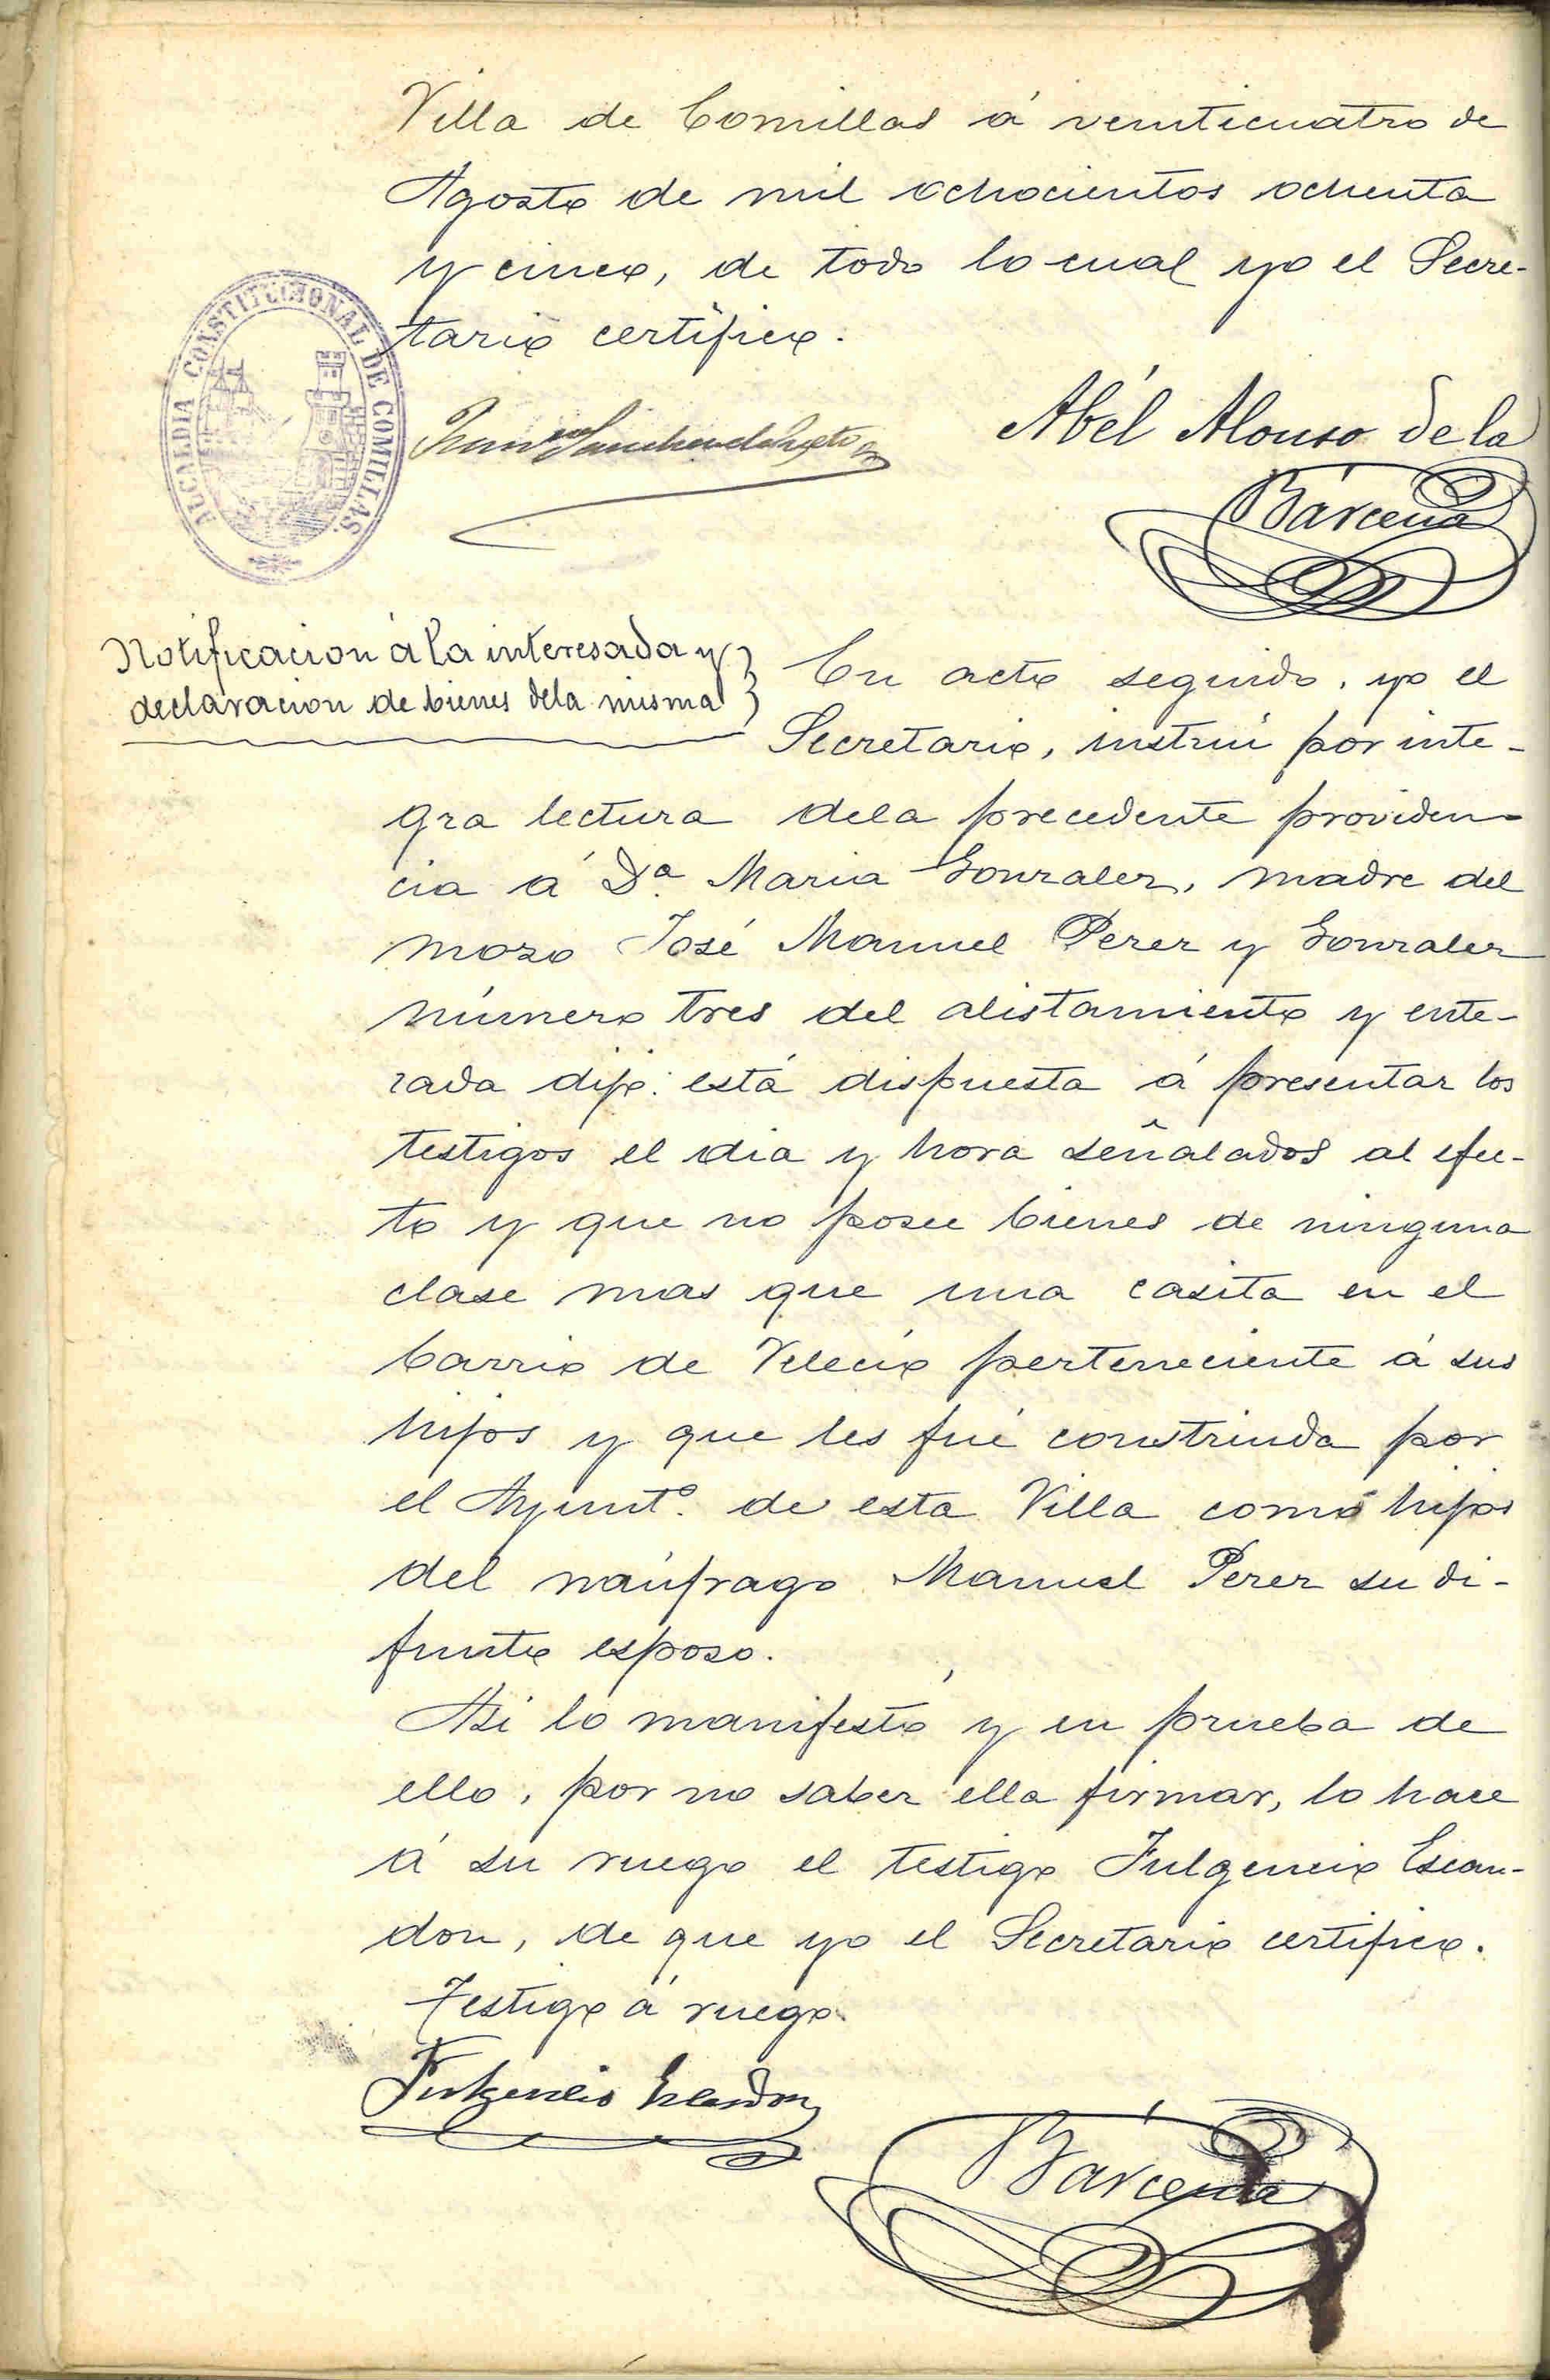 Villa de Comillas á veinticuatro de
Agosto de mil ochocientos ochenta
y cinco, de todo lo cual yo el Secre-
tario certifico.
ALCALDIA CONSTITUCIONAL DE COMILLAS
Abél Alonso de la
Bárcena
Notificacion á la interesada y
declaracion de bienes dela misma
En acto seguido, yo el
Secretario, instruí por inte-
gra lectura dela precedente providen-
cia á Dª. Maria Gonzalez, madre del
mozo José Manuel Perez y Gonzalez
número tres del alistamiento y ente-
rada dijo: está dispuesta á presentar los
testigos el dia y hora señalados al efec-
to y que no posee bienes de ninguna
clase mas que una casita en el
barrio de Velecío perteneciente á sus
hijos y que les fué construida por
el Ayuntº. de esta Villa como hijos
del naúfrago Manuel Perez su di-
funto esposo.
Asi lo manifestó y en prueba de
ello, por no saber ella firmar, lo hace
á su ruego el testigo Fulgencio Escan-
don, de que yo el Secretario certifico.
Testigo á ruego.
Fulgencio Escandon
Bárcena